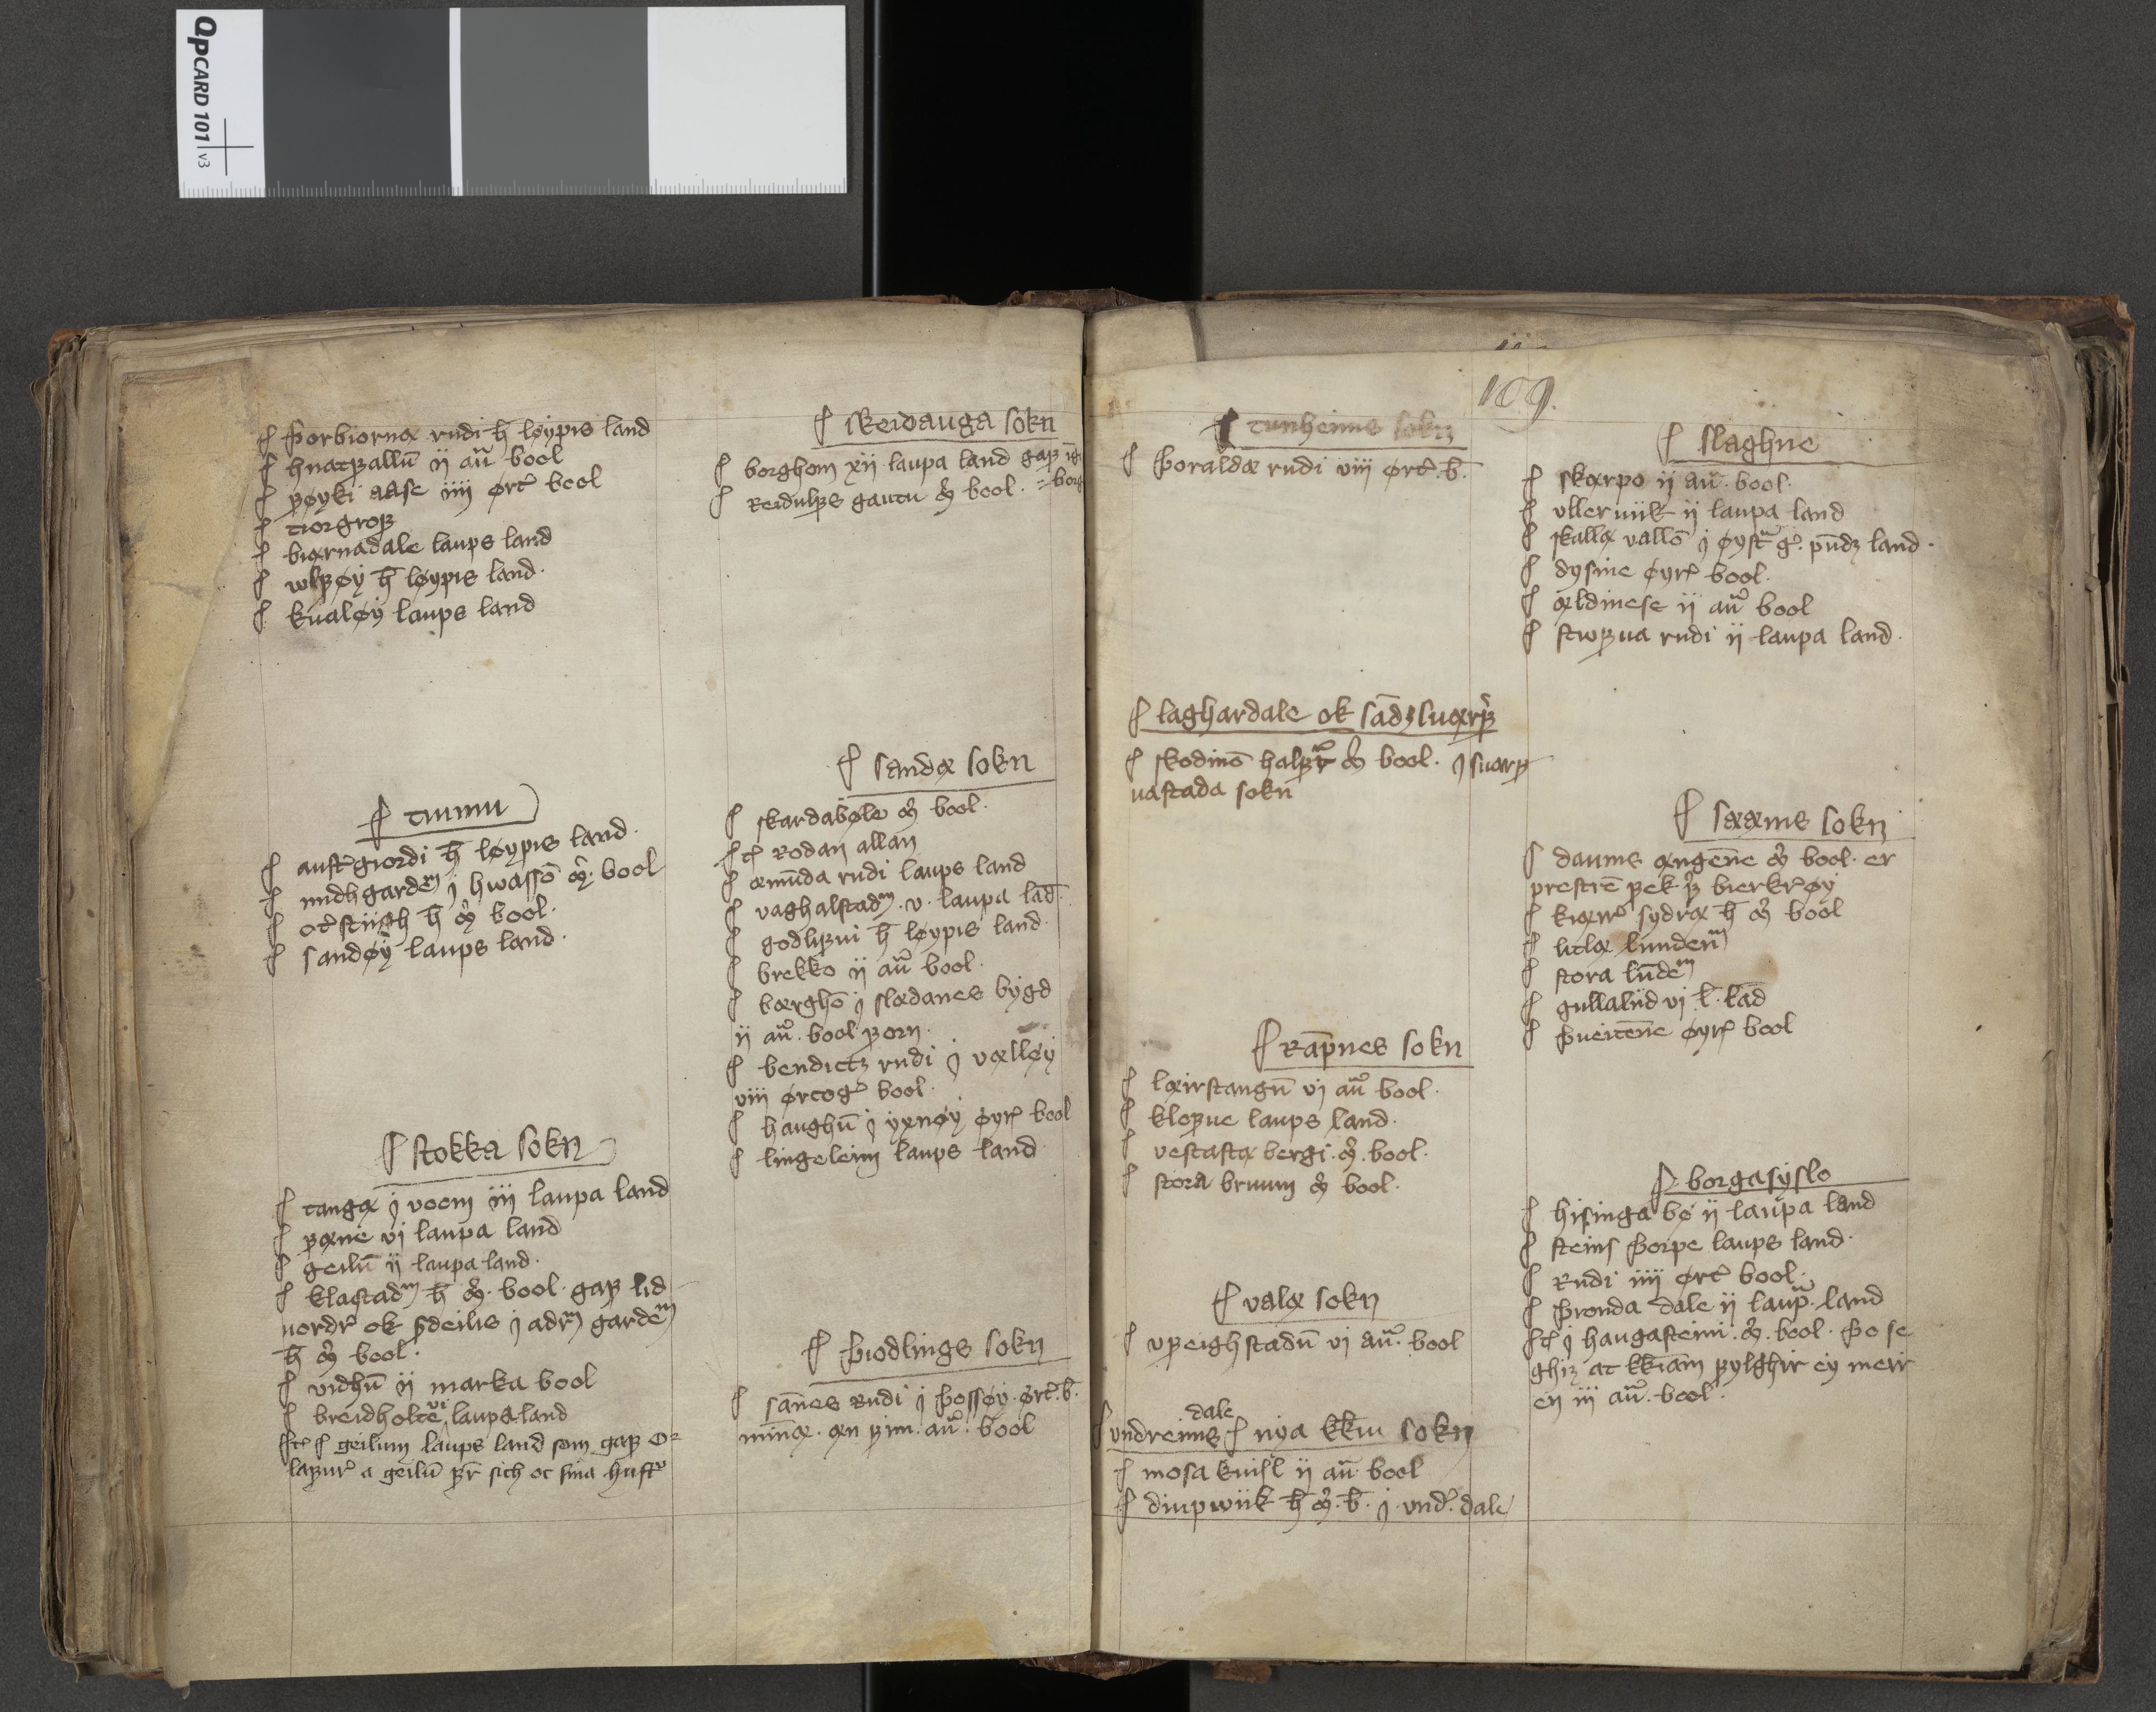 QPCARD 101 v3
¶ Þorbiornæ rudi h̄ løypis land
¶ hnatꝩallū ij au̅ bool
¶ ꝩøyki aase iiij ørt᷎ bool
¶ tiorgroꝩ
¶ biærnadale laups land
¶ wlꝩøy h̄ løypis land.
¶ kualøy laups land
¶ tunmu
¶ aust᷎giordi h̄ løypis land.
¶ midhgardeᵐ j hwassō m᷎. bool
¶ ot᷎stiigh h̄ m᷎ bool.
¶ sandøy laups land.
¶ stokka sokn
¶ tangæ j voem iij laupa land
¶ ꝩæne vj laupa land
¶ geilū ij laupa land.
¶ klastadᵐ h̄ m᷎. bool. gaꝩ lid
nordr᷎ ok sdeilis j adrᵐ gardeᵐ
h̄ m᷎ bool.
¶ vidhū ij marka bool
¶ breidholte vj laupa land
Jt᷎ ¶ geilum laups land som gaꝩ o
laꝩur᷎ a geilū ꝩr̄ sich oc sina hust᷎
¶ skeidauga sokn
¶ borghom xij laupa land gaꝩ
¶ Reidulꝩs gautu m᷎ bool. = borg
¶ sandæ sokn
¶ skardabøle m᷎ bool.
Jt᷎ Rodan allan
¶ æmūda rudi laups land
¶ vaghalstadᵐ. v. laupa lād.
¶ godliꝩui h̄ løypis land.
¶ brekko ij au̅ bool.
¶ bærghō j slædanes bygd
ij au̅. bool ꝩorn.
¶ bendictz rudi j vælløy
viij ørtog᷎ bool.
¶ haughū j yxnøy øyr᷎ bool
¶ lingeleim laups land
¶ Þiodlings sokn
¶ sān̄es Rudi j Þossøy. ørt᷎. b̄.
min̄æ. æn ꝩim. au̅. bool
109.
¶ tunheims sokn
¶ Þoraldæ rudi viij ørt᷎. b̄.
¶ laghardale ok sādz suærꝩ᷎
¶ skodinō halꝩr m᷎ bool. j suærꝩ
uastada sokn
¶ Raꝩnes sokn
¶ læirstangū vj au̅ bool.
¶ kloꝩue laups land.
¶ vestastæ bergi. m᷎. bool.
¶ stora bruum m᷎ bool.
¶ valæ sokn
¶ vꝩeighstadū vj au̅. bool
¶ vndreims dale ¶ nya kk̄iu sokn
¶ mosa kuisl ij au̅. bool
¶ diupwiik h̄ m᷎. b̄. j vnd᷎. dale
¶ slaghne
¶ skærpo ij au̅. bool.
¶ vlleruiik ij laupa land
¶ skallæ vallō j øystᵘ g᷎. pūdz land.
¶ dysine øyr᷎ bool.
¶ ældinese ij au̅ bool
¶ stwꝩua rudi ij laupa land.
¶ sææms sokn
¶ daums ængen̄e m᷎ bool. er
prestrē ꝩek ꝩ᷎ bierkr᷎øy
¶ kiærr᷎ sydræ h̄ m᷎ bool
¶ litlæ lundenᵐ
¶ stora lūdeᵐ
¶ gullaliid vj. l̄. lād
¶ Þueiten̄e øyr᷎ bool
¶ borgasyslo
¶ hisinga bø ij laupa land
¶ steins Þorpe laups land.
¶ Rudi iiij ørt᷎ bool.
¶ Þronda dale ij laup᷎. land
Jt᷎ j haugasteini. m᷎. bool. Þo se
ghiz at kk̄iām ꝩylghir ey meir
en iij au̅. bool.